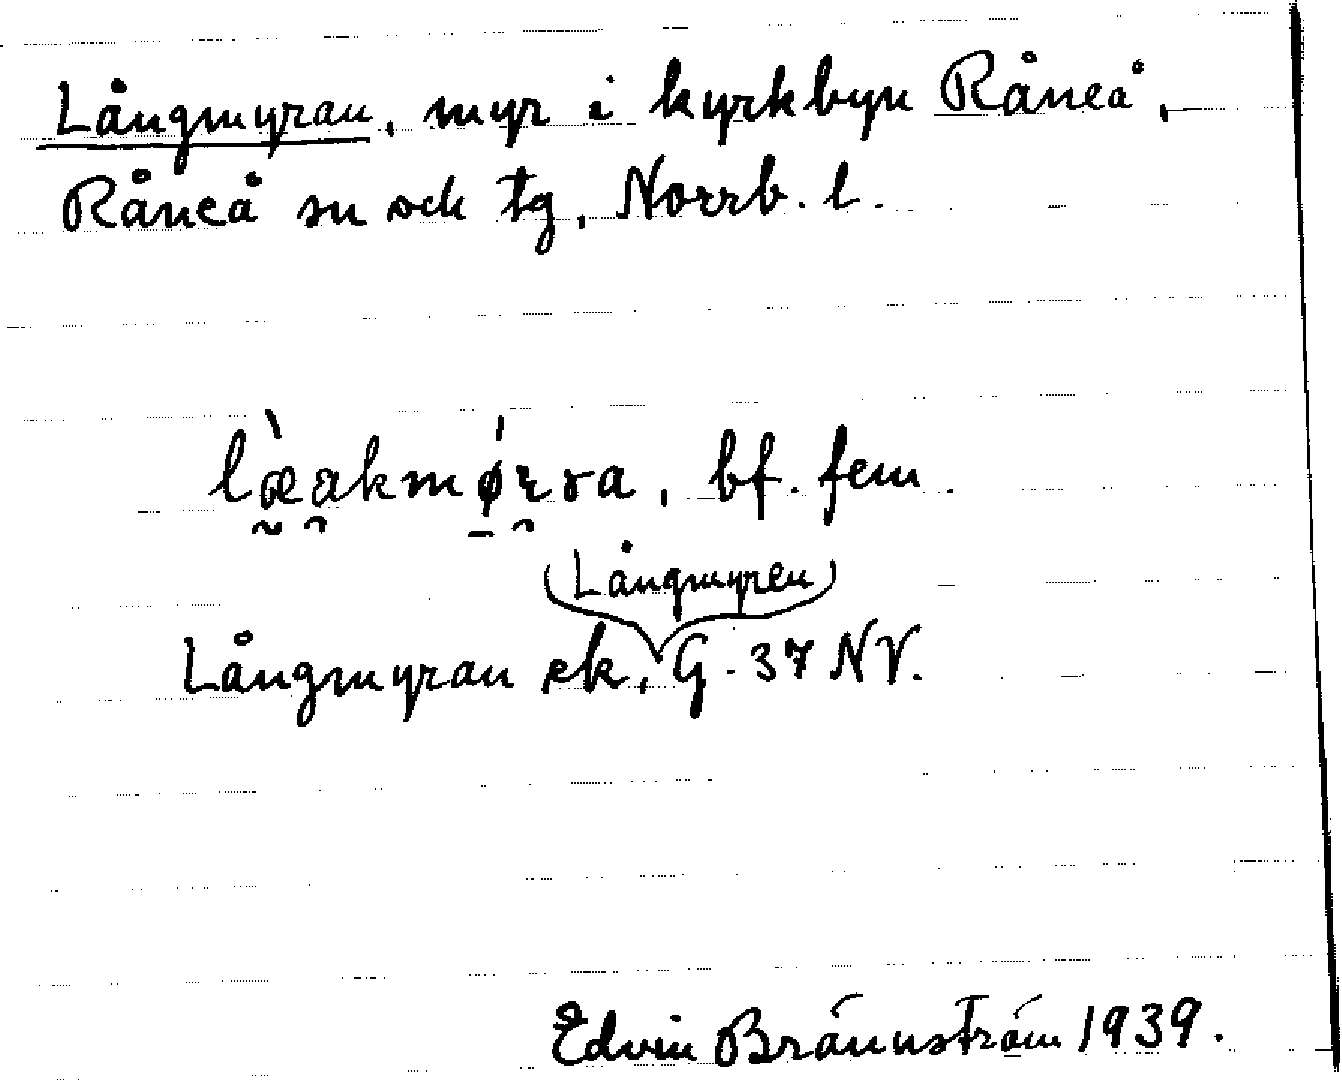 Långmyran, myr i kyrkbyn Råneå,
Råneå sn och tg, Norrb. l.
bf. fem.
(Långmyren)
Långmyran ek, G. 37 NV.
Edvin Brännström 1939.